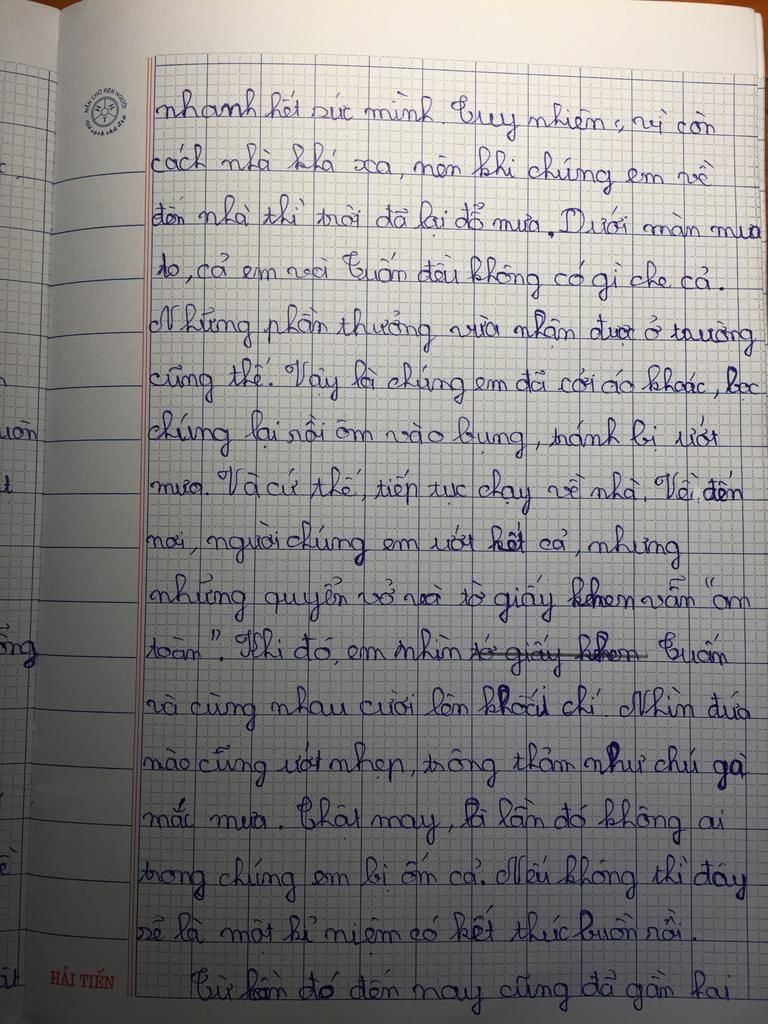 NẮN CHỮ RÈN NGƯỜI
nhanh hết sức mình. Tuy nhiên, vì còn
cách nhà khá xa, nên khi chúng em về
đến nhà thì trời đã lại đổ mưa. Dưới màn mưa
to, cả em với Tuấn đều không có gì che cả.
Những phần thưởng vừa nhận được ở trường
cũng thế. Vậy là chúng em đã cởi áo khoác, bọc
chúng lại rồi ôm vào bụng, tránh bị ướt
mưa. Và cứ thế, tiếp tục chạy về nhà. Về đến
nơi, người chúng em ướt hết cả, nhưng
những quyển vở và tờ giấy khen vẫn "an
toàn". Khi đó, em nhìn tớ giấy khen Tuấn
và cùng nhau cười lên khoái chí. Nhìn đứa
nào cũng ướt nhẹp, trông thảm như chú gà
mắc mưa. Thật may, là lần đó không ai
trong chúng em bị ốm cả. Nếu không thì đây
sẽ là một kỉ niệm có kết thúc buồn rồi.
Từ lần đó đến nay cũng đã gần hai
HẢI TIẾN